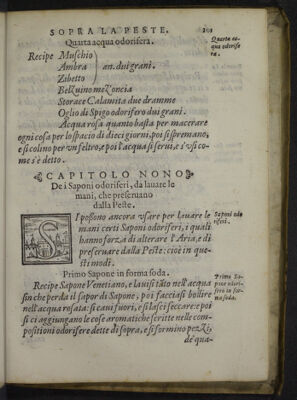 SOPRA LA PESTE. 201
Quarta acqua odorifera.
Quarta ac-
qua odorife
ra.
Recipe Muschio
Ambra } an. dui grani.
Zibetto
Belzuino mez'oncia
Storace Calamita due dramme
Oglio di Spigo odorifero dui grani.
Acqua rosa quanto basta per macerare
ogni cosa per lo spacio di dieci giorni, poi si spremano,
e si colino per un feltro, e poi l'acqua si serui, e s'usi co-
me s'è detto.
CAPITOLO NONO
De i Saponi odoriferi, da lauare le
mani, che preseruano
dalla Peste.
SI possono ancora vsare per lauare le
mani certi Saponi odoriferi, i quali
hanno forza di alterare l'Aria, e di
preseruare dalla Peste: cioè in que-
sti modi.
Saponi odo
riferi.
Primo Sapone in forma soda.
Primo Sa-
pone odori-
fero in for-
ma soda.
Recipe Sapone Venetiano, e laui si tãto nell'acqua
sin che perda il sapor di Sapone, poi facciasi bollire
nell'acqua rosata: si caui fuori, e si lasci seccare: e poi
si ci aggiungano le cose aromatiche scritte nelle com-
positioni odorifere dette di sopra, e si formino pezzi,
de' qua-